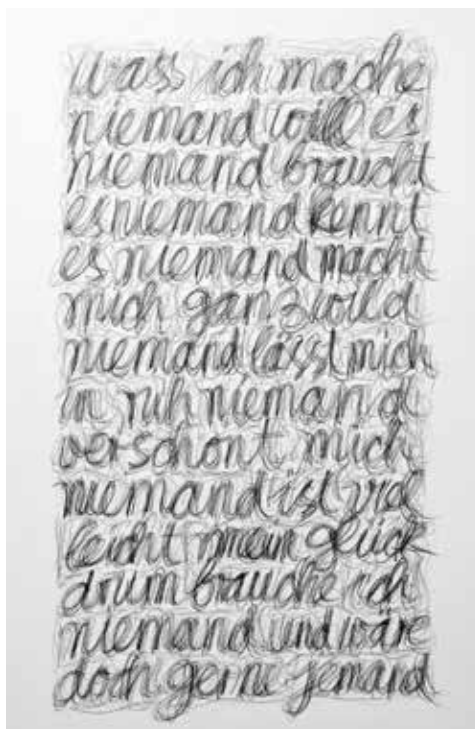 wass ich mache
niemand will es
niemand braucht
es niemand kennt
es niemand macht
mich ganz wild
niemand lässt mich
in ruh niemand
verschont mich
niemand ist viel
leicht mein glück
drum brauche ich
niemand und wäre
doch gerne jemand